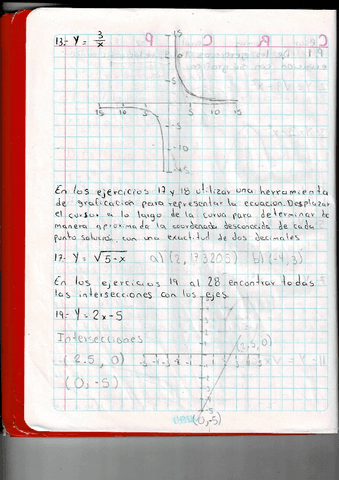 13.- Y = 3/x
15
5
15 10 5 5 10 15
-5
-10
En los ejercicios 17 y 18 utilizar una herramienta
de graficacion para representar la ecuacion. Desplazar
el cursor a lo largo de la curva para determinar de
manera aproximada la coordenada desconocida de cada
punto solucion, con una exactitud de dos decimales
17.- Y = √5-x a) (2, 1.73205) b) (-4,3)
En los ejercicios 19 al 28, encontrar todas
las intersecciones con los ejes.
19.- Y = 2x - 5
Intersecciones
(2.5, 0)
(2.5, 0)
(0, -5)
(0, -5)